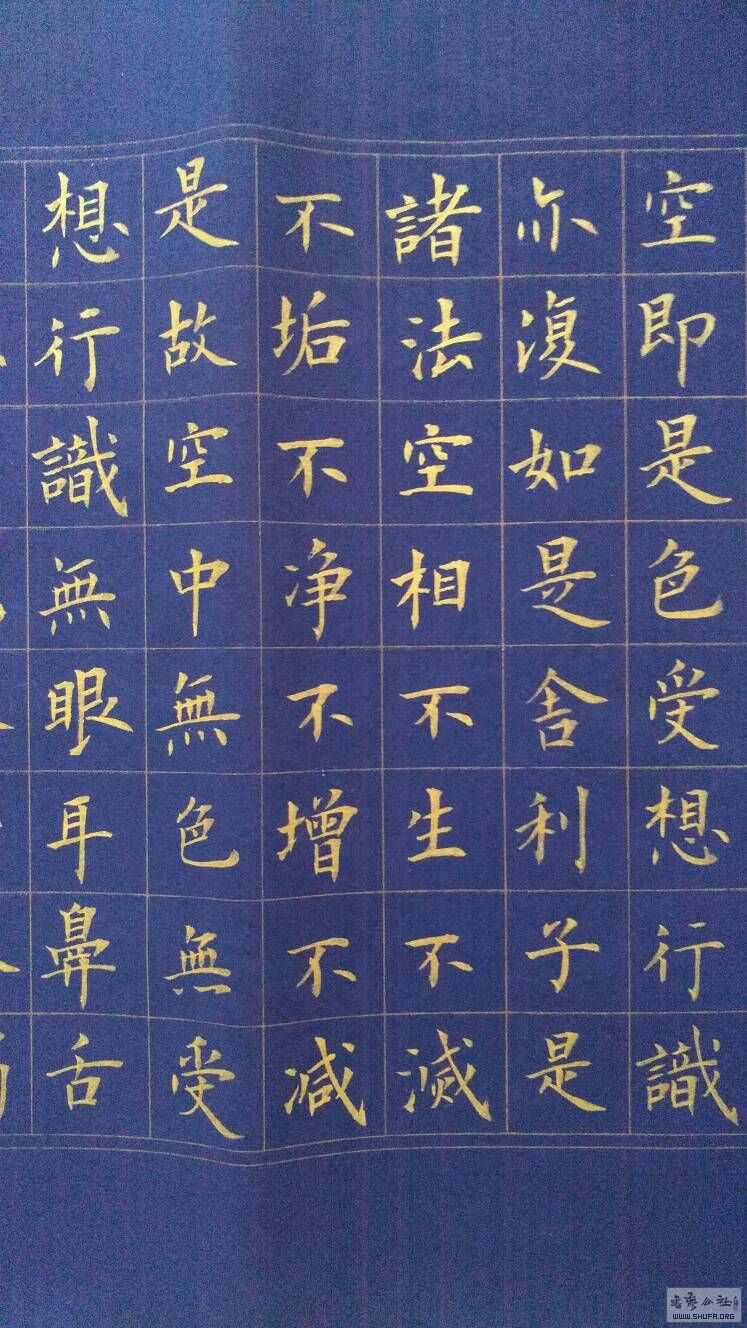 空即是色受想行識
亦復如是舍利子是
諸法空相不生不滅
不垢不净不增不減
是故空中無色無受
想行識無眼耳鼻舌
WWW.SHUFA.ORG